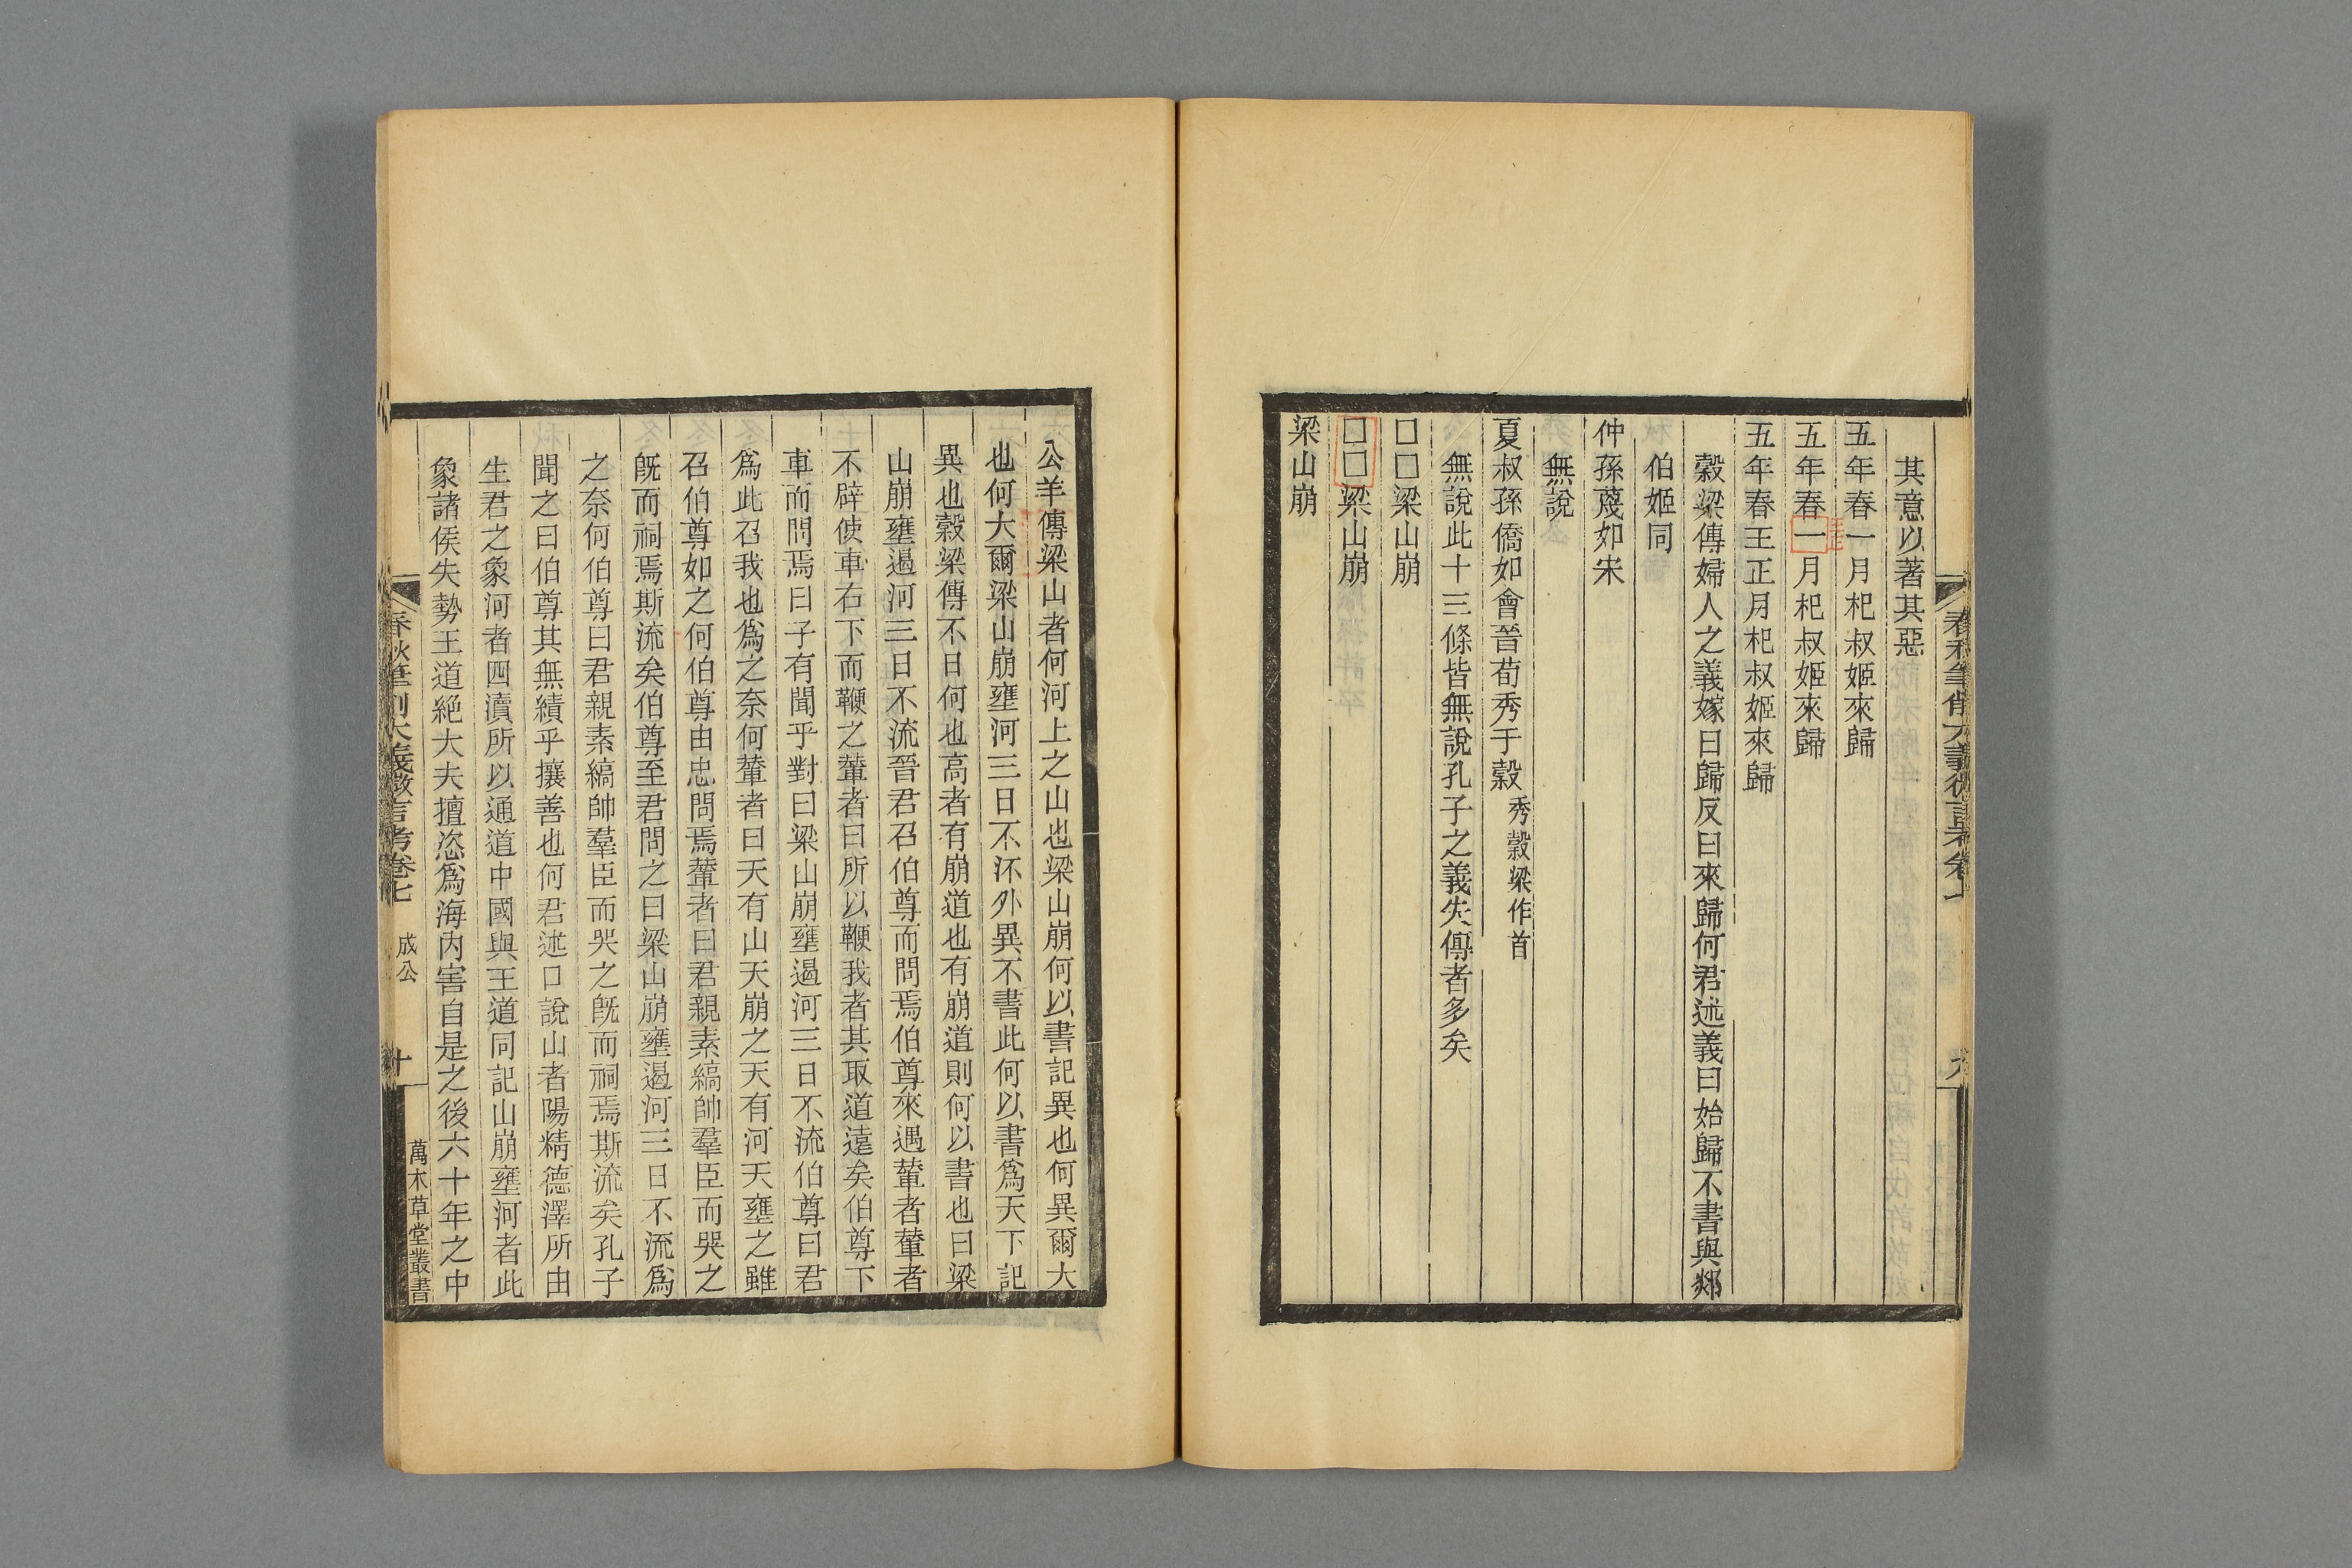 其意以著其惡
五年春一月杞叔姬來歸
五年春一月杞叔姬來歸
王正
五年春王正月杞叔姬來歸
穀梁傳婦人之義嫁曰歸反曰來歸何君述義曰始歸不書與郯
伯姬同
仲孫蔑如宋
無說
夏叔孫僑如會晉荀秀于穀秀穀梁作首
無說此十三條皆無說孔子之義失傳者多矣
□□梁山崩
□□梁山崩
梁山崩
公羊傳梁山者何河上之山也梁山崩何以書記異也何異爾大
也何大爾梁山崩壅河三日不㳅外異不書此何以書爲天下記
異也穀梁傳不日何也高者有崩道也有崩道則何以書也曰梁
山崩壅遏河三日不流晉君召伯尊而問焉伯尊來遇輦者輦者
不辟使車右下而鞭之輦者曰所以鞭我者其取道遠矣伯尊下
車而問焉曰子有聞乎對曰梁山崩壅遏河三日不流伯尊曰君
爲此召我也爲之奈何輦者曰天有山天崩之天有河天壅之雖
召伯尊如之何伯尊由忠問焉輦者曰君親素縞帥羣臣而哭之
旣而祠焉斯流矣伯尊至君問之曰梁山崩壅遏河三日不流爲
之奈何伯尊曰君親素縞帥羣臣而哭之旣而祠焉斯流矣孔子
聞之曰伯尊其無績乎攘善也何君述口說山者陽精德澤所由
生君之象河者四瀆所以通道中國與王道同記山崩壅河者此
象諸侯失勢王道絕大夫擅恣爲海內害自是之後六十年之中
春秋筆削大義微言考卷七 成公 十 萬木草堂叢書